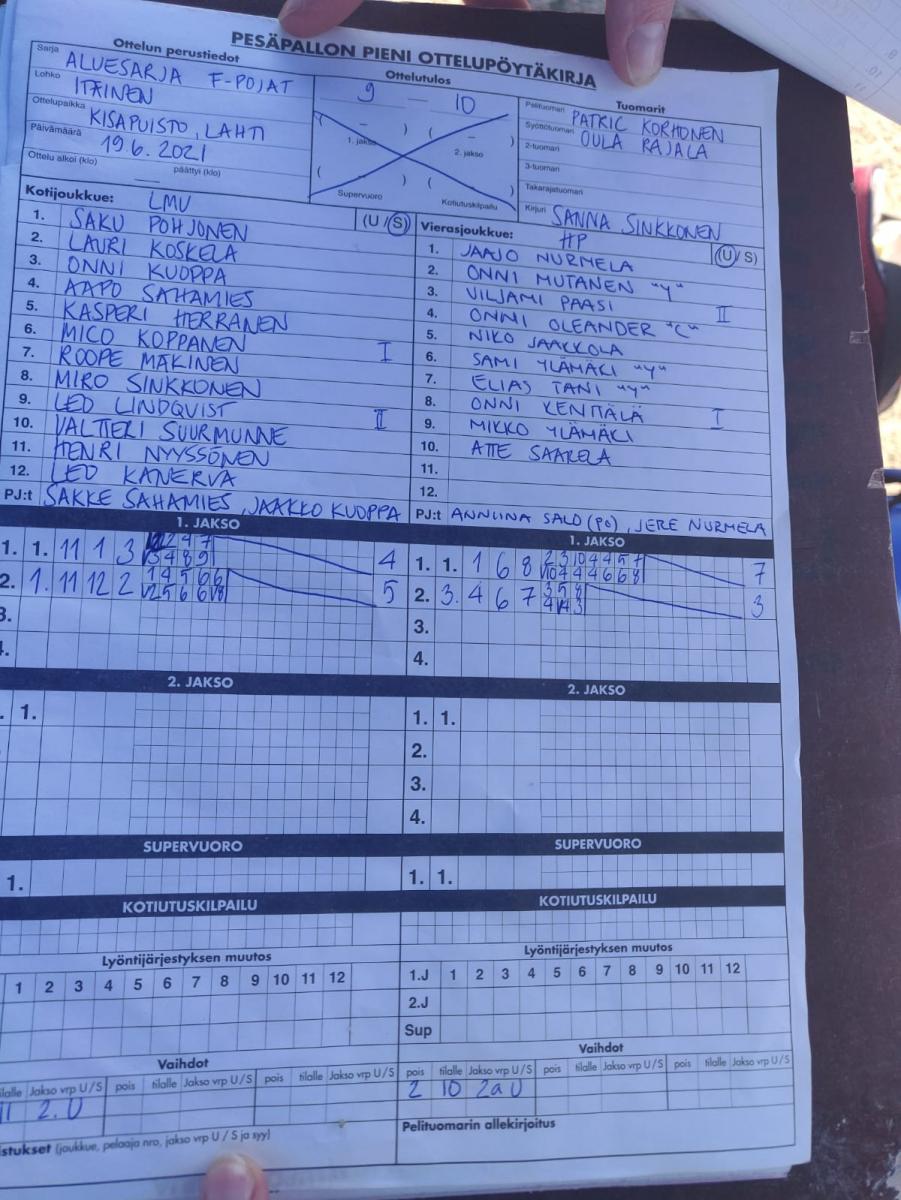 PESÄPALLON PIENI OTTELUPÖYTÄKIRJA
Ottelun perustiedot
Sarja ALUESARJA F-POJAT
Lohko ITÄINEN
Ottelupaikka KISAPUISTO, LAHTI
Päivämäärä 19.6.2021
Ottelu alkoi (klo) päättyi (klo)
Ottelutulos
9 – 10
( – ) ( – )
1. jakso 2. jakso
( ) ( )
Supervuoro Kotiutuskilpailu
Tuomarit
Pelituomari PATRIC KORHONEN
Syöttötuomari OULA RAJALA
2-tuomari
3-tuomari
Takarajatuomari
Kirjuri SANNA SINKKONEN
Kotijoukkue: LMV (U / S)
1. SAKU POHJONEN
2. LAURI KOSKELA
3. ONNI KUOPPA
4. AAPO SAHAMIES
5. KASPERI HERRANEN
6. MICO KOPPANEN I
7. ROOPE MÄKINEN
8. MIRO SINKKONEN
9. LEO LINDQVIST II
10. VALTTERI SUURMUNNE
11. HENRI NYYSSÖNEN
12. LEO KANERVA
PJ:t SAKKE SAHAMIES, JAAKKO KUOPPA
Vierasjoukkue: HP (U / S)
1. JAAJO NURMELA
2. ONNI MUTANEN "Y"
3. VILJAMI PAASI II
4. ONNI OLEANDER "C"
5. NIKO JAAKKOLA
6. SAMI YLÄMÄKI "Y"
7. ELIAS TANI "Y"
8. ONNI KENTTÄLÄ I
9. MIKKO YLÄMÄKI
10. ATTE SAARELA
11.
12.
PJ:t ANNIINA SALO (PO), JERE NURMELA
1. JAKSO
1. 1. 11 1 3 2 4 7 4
3 4 8 9
2. 1. 11 12 2 1 4 5 6 6 5
2 5 6 6
3.
4.
1. JAKSO
1. 1. 1 6 8 2 3 10 4 4 5 7 7
10 4 4 4 6 6 8
2. 3. 4 6 7 3 5 8 3
3.
4.
2. JAKSO
1.
2. JAKSO
1. 1.
2.
3.
4.
SUPERVUORO
1.
SUPERVUORO
1. 1.
KOTIUTUSKILPAILU
KOTIUTUSKILPAILU
Lyöntijärjestyksen muutos
1 2 3 4 5 6 7 8 9 10 11 12
Lyöntijärjestyksen muutos
1.J 1 2 3 4 5 6 7 8 9 10 11 12
2.J
Sup
Vaihdot
Jakso vrp U / S pois tilalle Jakso vrp U / S pois tilalle Jakso vrp U / S
11 2. U
Vaihdot
pois tilalle Jakso vrp U / S pois tilalle Jakso vrp U / S pois tilalle Jakso vrp U / S
2 10 2a U
(joukkue, pelaaja nro, jakso vrp U / S ja syy)
Pelituomarin allekirjoitus